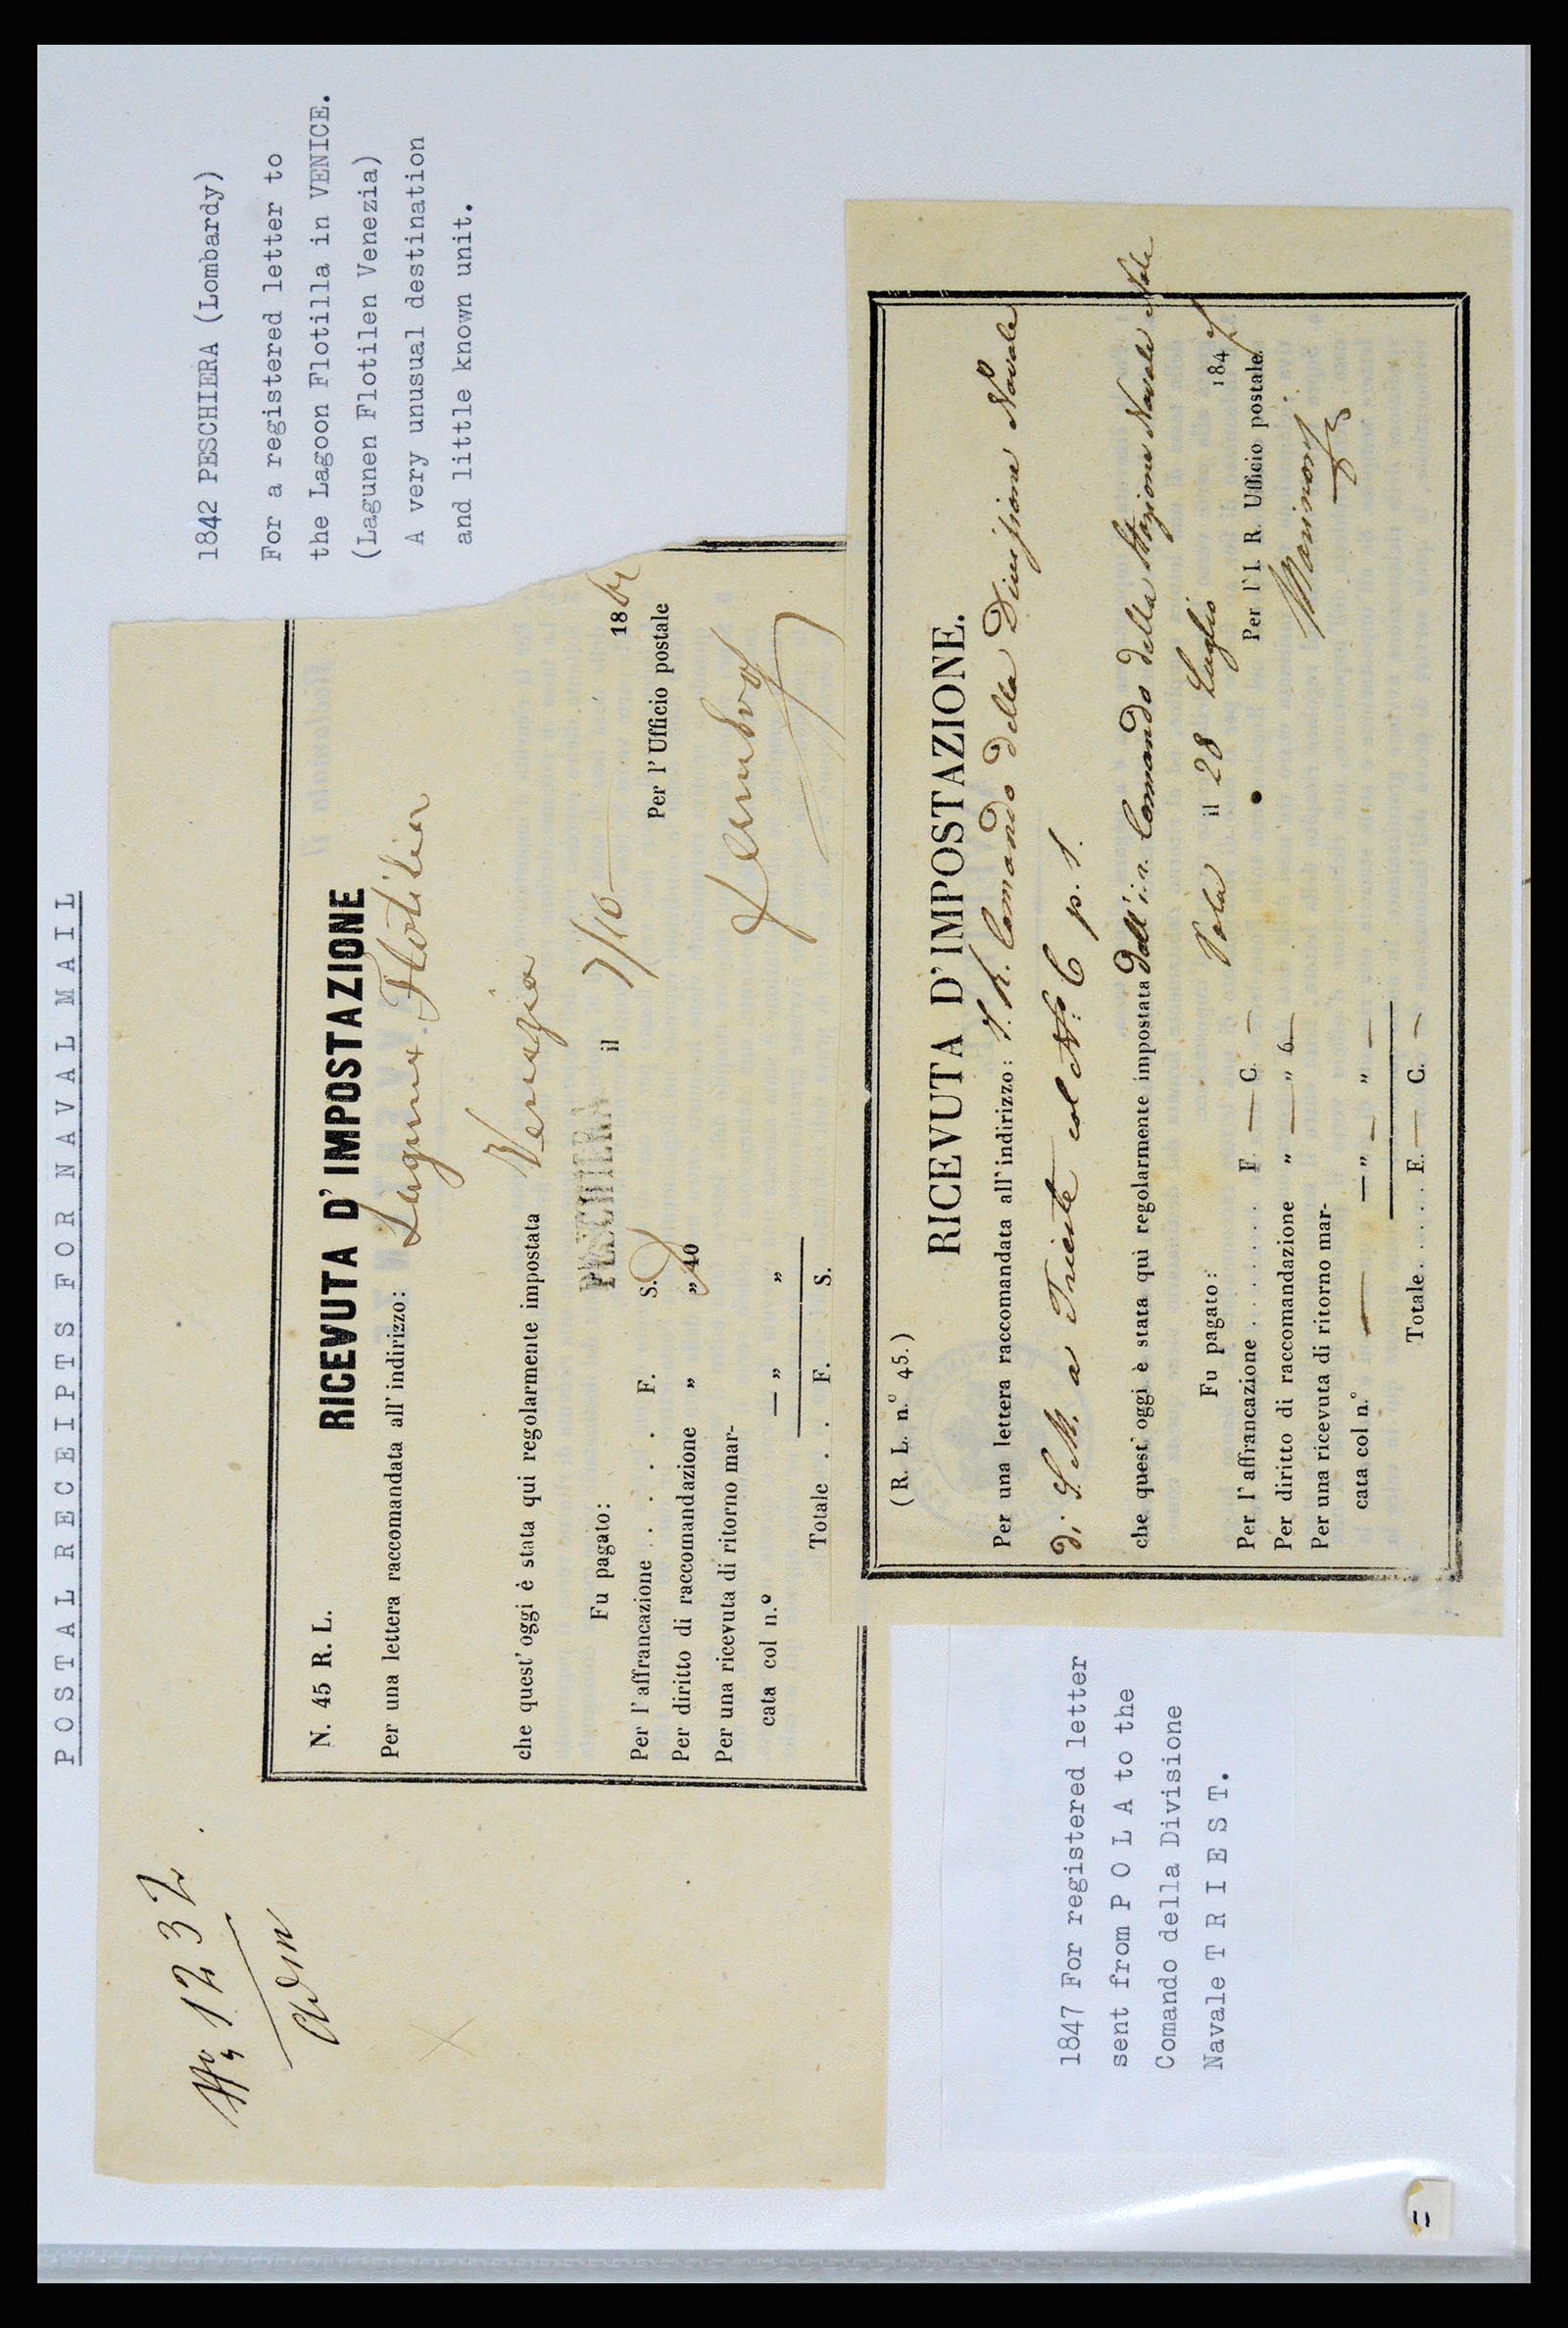 POSTAL RECEIPTS FOR NAVAL MAIL
No 1232
Adm
N. 45 R. L.
RICEVUTA D' IMPOSTAZIONE
Per una lettera raccomandata all' indirizzo: Flotilier
Venezia
che quest' oggi è stata qui regolarmente impostata
PESCHIERA il 7/10 186
Fu pagato:
Per l' Ufficio postale
Per l' affrancazione . . . . . F. S.
Per diritto di raccomandazione „ „ 10
Per una ricevuta di ritorno mar-
cata col n.º — „ „
Totale . . F. S.
1842 PESCHIERA (Lombardy)
For a registered letter to
the Lagoon Flotilla in VENICE.
(Lagunen Flotilen Venezia)
A very unusual destination
and little known unit.
(R. L. n.º 45.)
RICEVUTA D' IMPOSTAZIONE.
Per una lettera raccomandata all' indirizzo: I. R. Comando della Divisione Navale
di S. M. a Trieste col Nº 6 p. 1.
che quest' oggi è stata qui regolarmente impostata dall' i. r. Comando della Stazione Navale
Pola il 28 Luglio 1847
Fu pagato:
Per l' I. R. Ufficio postale.
Per l' affrancazione . . . . . . . . F. — C. —
Per diritto di raccomandazione „ — „ 6 —
Per una ricevuta di ritorno mar-
cata col n.º — — „ — „ —
Totale . . . . . . F. — C. —
1847 For registered letter
sent from P O L A to the
Comando della Divisione
Navale T R I E S T.